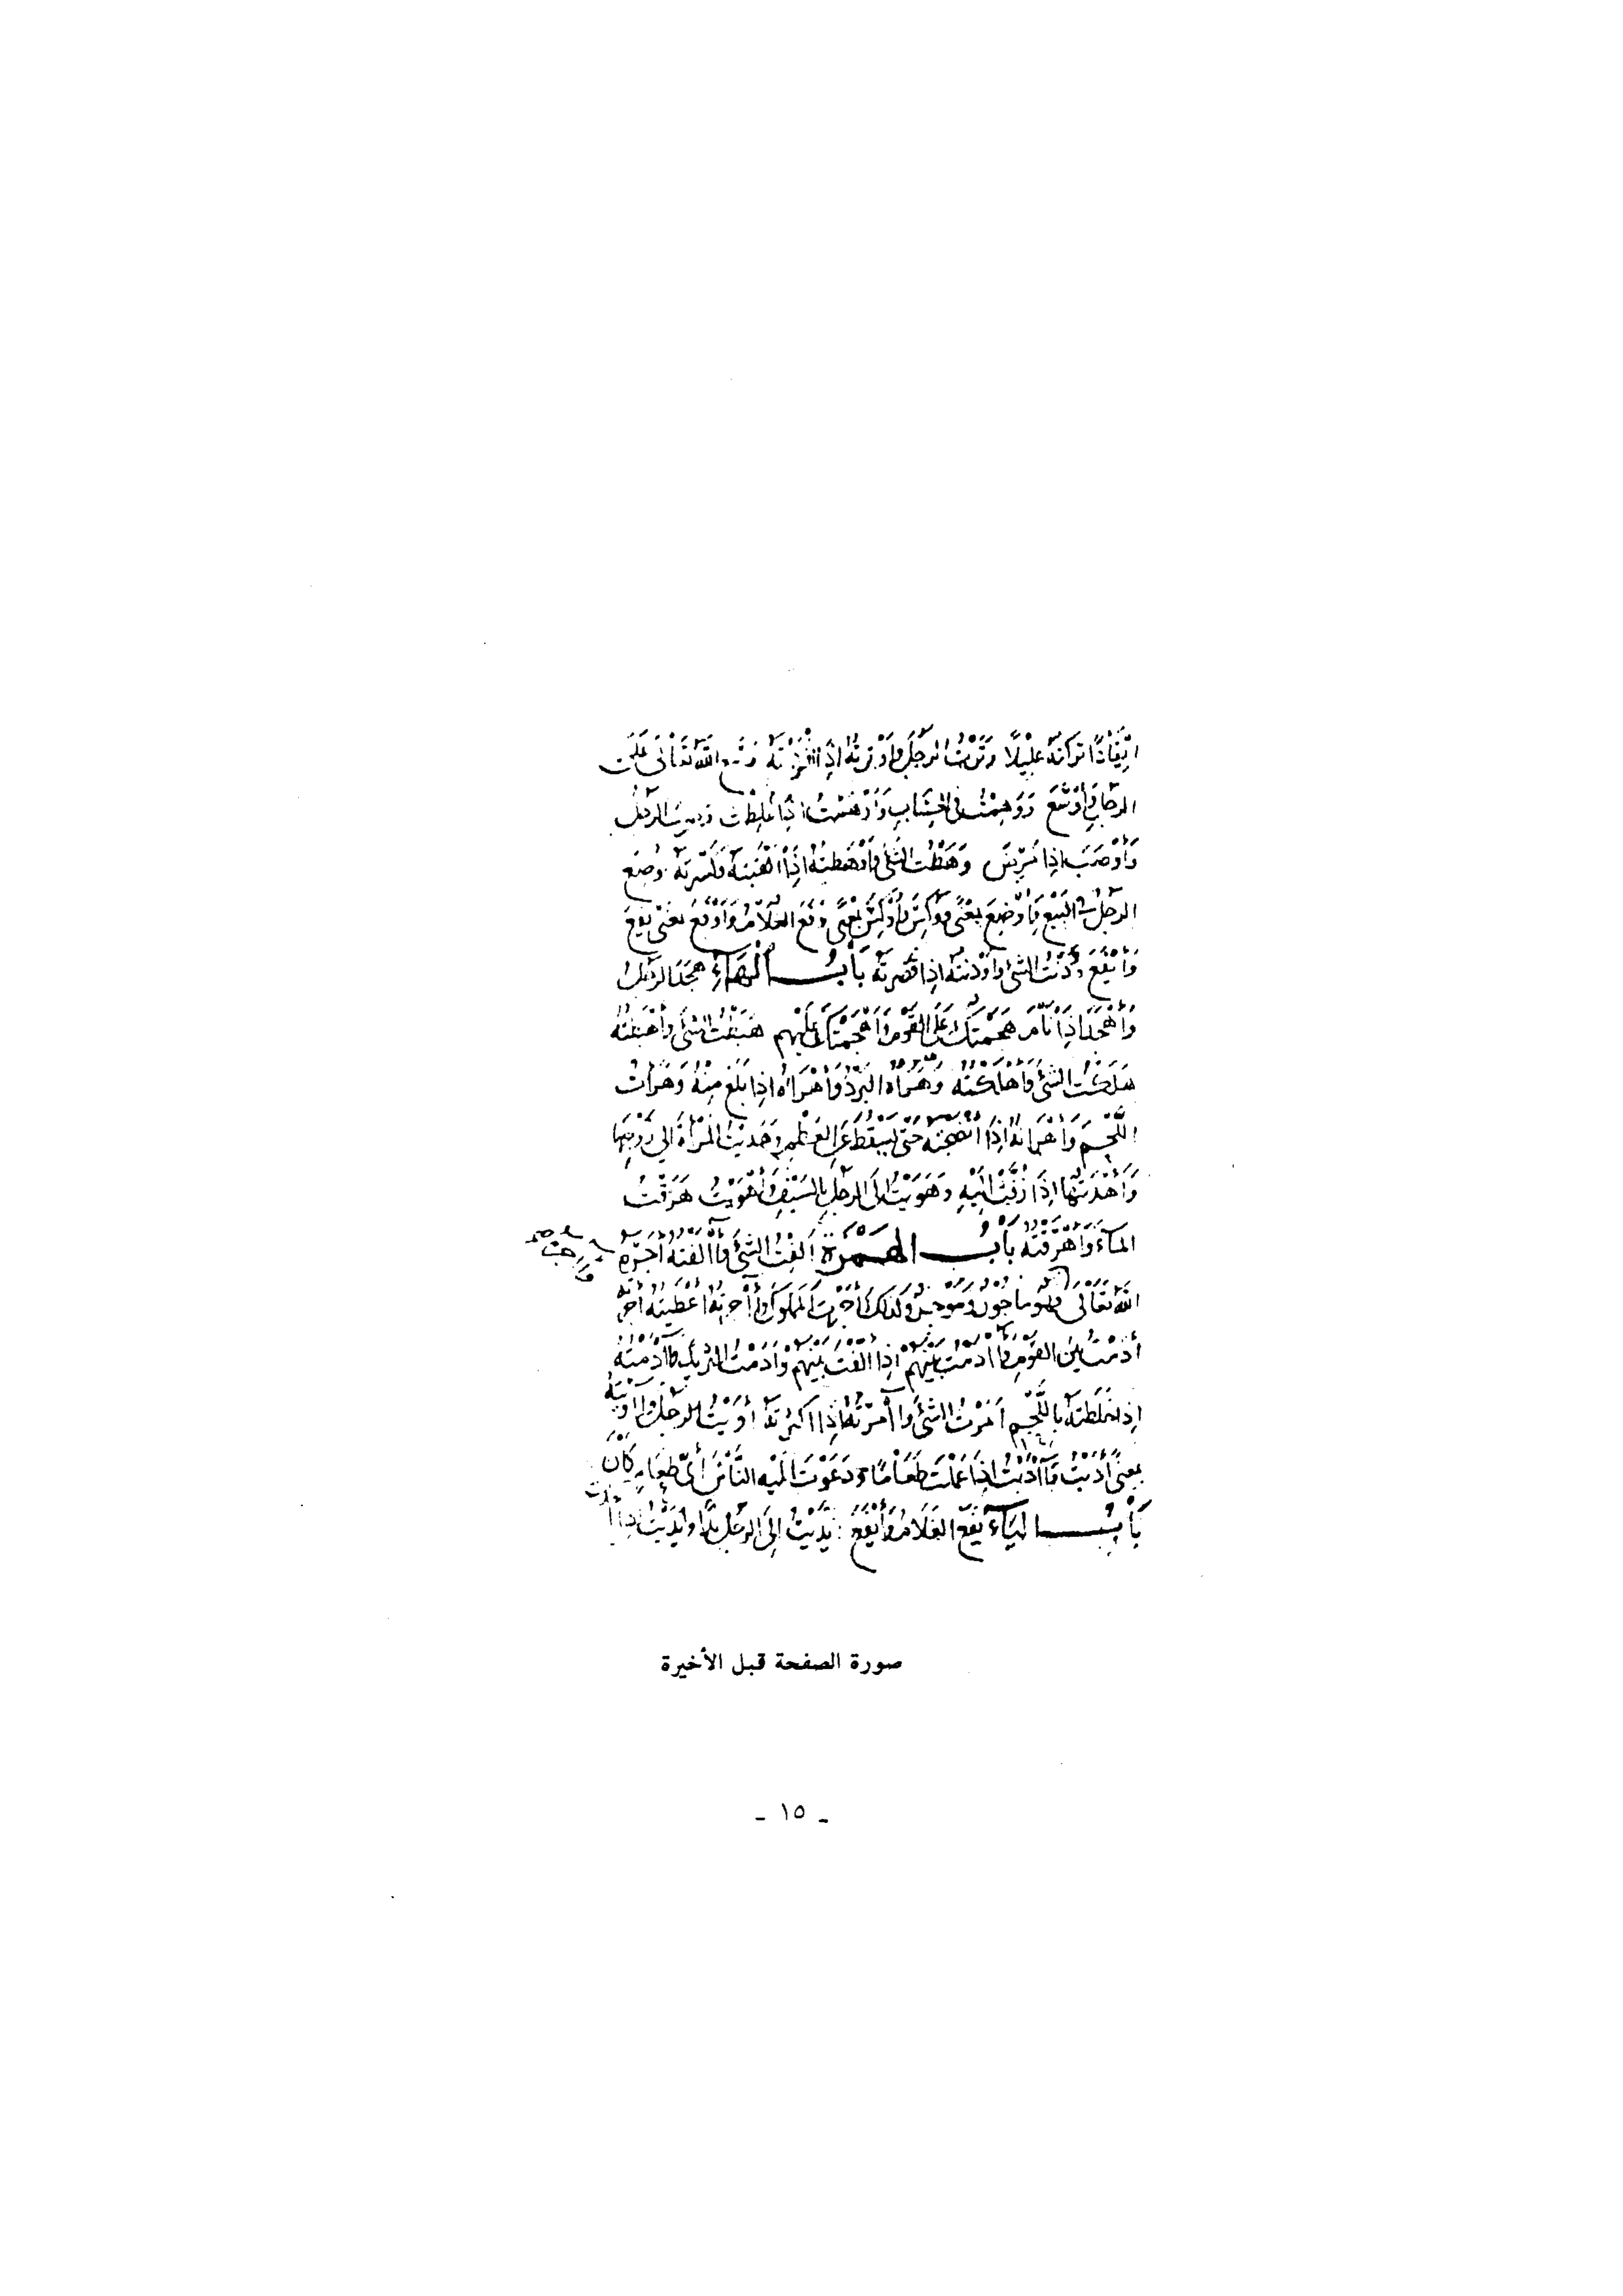 تركته عليلا وَتَرْتُ الرجلَ وأوترته إذا أفردته وسّع الله تعالى على
الرجل وأوسع ووهمت في الحساب وأوهمت إذا غلطت ووصب الرجل
وَأوْصَبَ إذا مرض وهطت الشيء وأوهطته إذا وكسرته وُضِع
الرجلُ في البيع وأوضع بمعنى ووكس وأوكس بمعنى وَقَع الغلام وَأوْفَع بمعنى يفع
وَأيْفَعَ وَدَنْتُ الشيء وأودنته إذا قصرته بَابُ الْهَاءِ هجد الرجل
وَأهْجَدَ إذا نَامَ هجمتك على القوم وَأهجمتك عليهم هبطت الشيء وأهبطته
هلكت الشيء وأهلكته وهَرَأه البرد وَأهرأه إذا بلغ منه وَهرأت
اللحم وَأهرأته إذا أنضجته حتى يسقط عن العظم وهديت المرأة إلى زوجها
وَأهديتها إذا زففت إليه وهويت إلى الرجل بالسيف وأهويت هرقت
الماءَ وَأهرقته بابُ الهمزة ألفت الشيء وآلفته أجره
الله تعالى فهو مأجور ومؤجر وكذلك أجرت المملوك وآجرته أعطيته أجره
أدمت بين القوم وآدمت بينهم إذا ألفت بينهم وأدمت الثريد وآدمته
إذا خلطته باللحم أمرت الشيء وآمرته إذا أكثرته أويت الرجل وآويته
بمعنى أدبت وآدبت إذا عملت طعاما ودعوت إليه الناس أي طعام كان
بَابُ اليَاءِ يفع الغلام وأيفع يديت إلى الرجل يدا وأيديت إذا
صورة الصفحة قبل الأخيرة
ـ ١٥ ـ